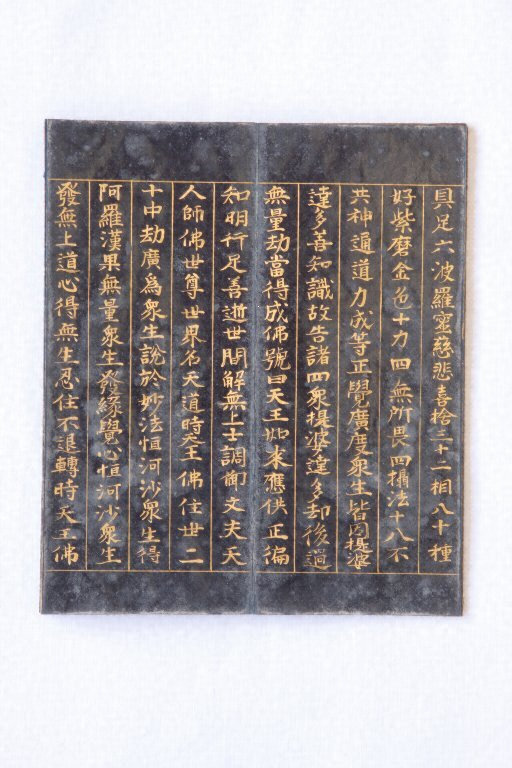 具足六波羅蜜慈悲喜捨三十二相八十種
好紫磨金色十力四無所畏四攝法十八不
共神通道力成等正覺廣度眾生皆因提婆
達多善知識故告諸四眾提婆達多却後過
無量劫當得成佛號曰天王如来應供正徧
知明行足善逝世間解無上士調御丈夫天
人師佛世尊世界名天道時天王佛住世二
十中劫廣為眾生說於妙法恒河沙眾生得
阿羅漢果無量眾生發緣覺心恒河沙眾生
發無上道心得無生忍住不退轉時天王佛